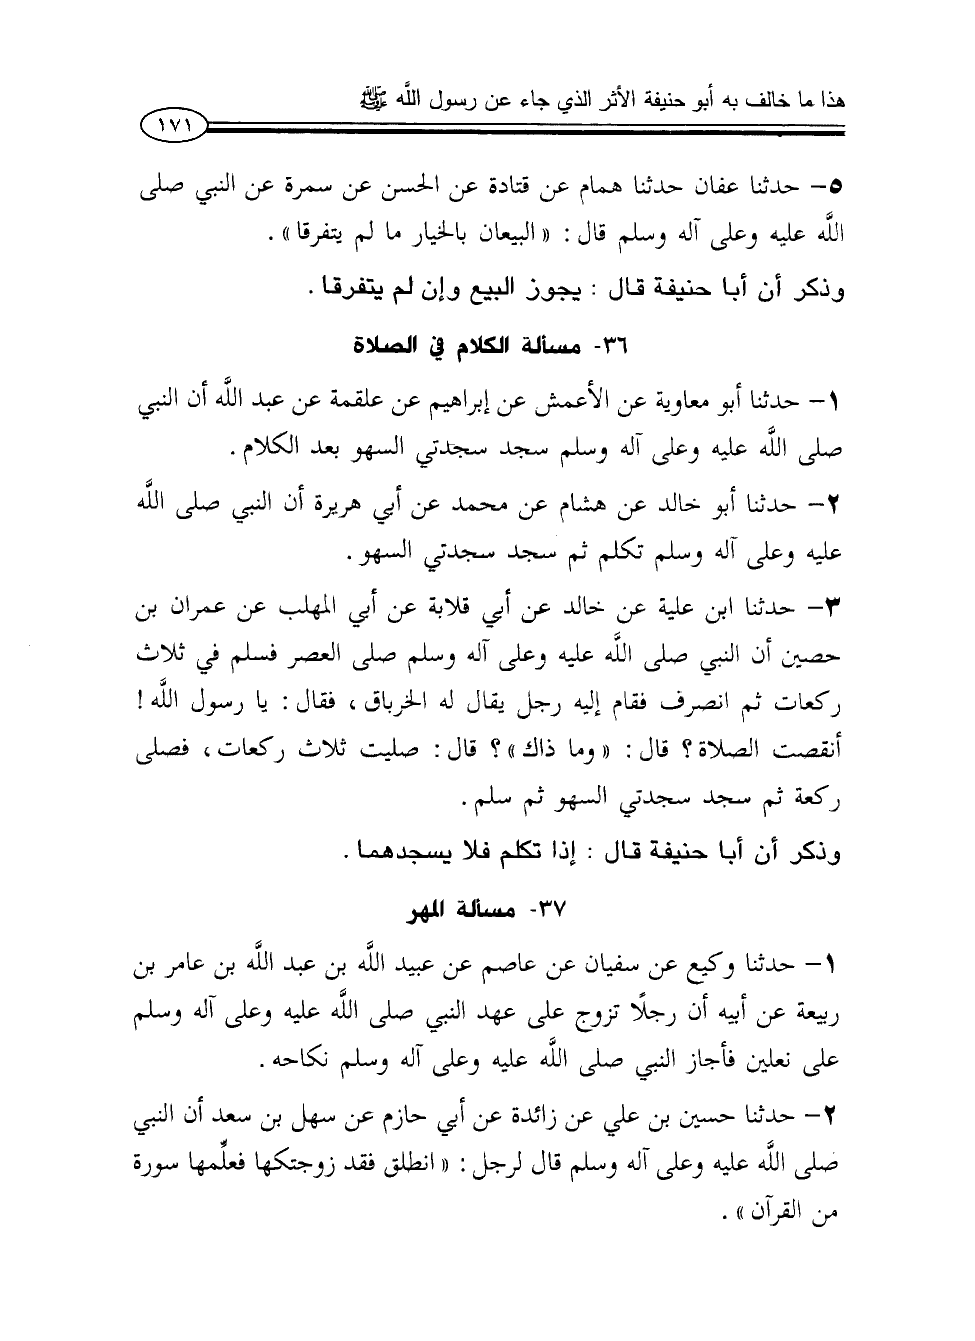 هذا ما خالف به أبو حنيفة الأثر الذي جاء عن رسول اللَّه ﷺ
١٧١
٥- حدثنا عفان حدثنا همام عن قتادة عن الحسن عن سمرة عن النبي صلى
اللَّه عليه وعلى آله وسلم قال : « البيعان بالخيار ما لم يتفرقا » .
وذكر أن أبا حنيفة قال : يجوز البيع وإن لم يتفرقا .
٣٦- مسألة الكلام في الصلاة
١- حدثنا أبو معاوية عن الأعمش عن إبراهيم عن علقمة عن عبد اللَّه أن النبي
صلى اللَّه عليه وعلى آله وسلم سجد سجدتي السهو بعد الكلام .
٢- حدثنا أبو خالد عن هشام عن محمد عن أبي هريرة أن النبي صلى اللَّه
عليه وعلى آله وسلم تكلم ثم سجد سجدتي السهو .
٣- حدثنا ابن علية عن خالد عن أبي قلابة عن أبي المهلب عن عمران بن
حصين أن النبي صلى اللَّه عليه وعلى آله وسلم صلى العصر فسلم في ثلاث
ركعات ثم انصرف فقام إليه رجل يقال له الخرباق ، فقال : يا رسول اللَّه !
أنقصت الصلاة ؟ قال : « وما ذاك » ؟ قال : صليت ثلاث ركعات ، فصلى
ركعة ثم سجد سجدتي السهو ثم سلم .
وذكر أن أبا حنيفة قال : إذا تكلم فلا يسجدهما .
٣٧- مسألة المهر
١- حدثنا وكيع عن سفيان عن عاصم عن عبيد اللَّه بن عبد اللَّه بن عامر بن
ربيعة عن أبيه أن رجلًا تزوج على عهد النبي صلى اللَّه عليه وعلى آله وسلم
على نعلين فأجاز النبي صلى اللَّه عليه وعلى آله وسلم نكاحه .
٢- حدثنا حسين بن علي عن زائدة عن أبي حازم عن سهل بن سعد أن النبي
صلى اللَّه عليه وعلى آله وسلم قال لرجل : « انطلق فقد زوجتكها فعلِّمها سورة
من القرآن » .